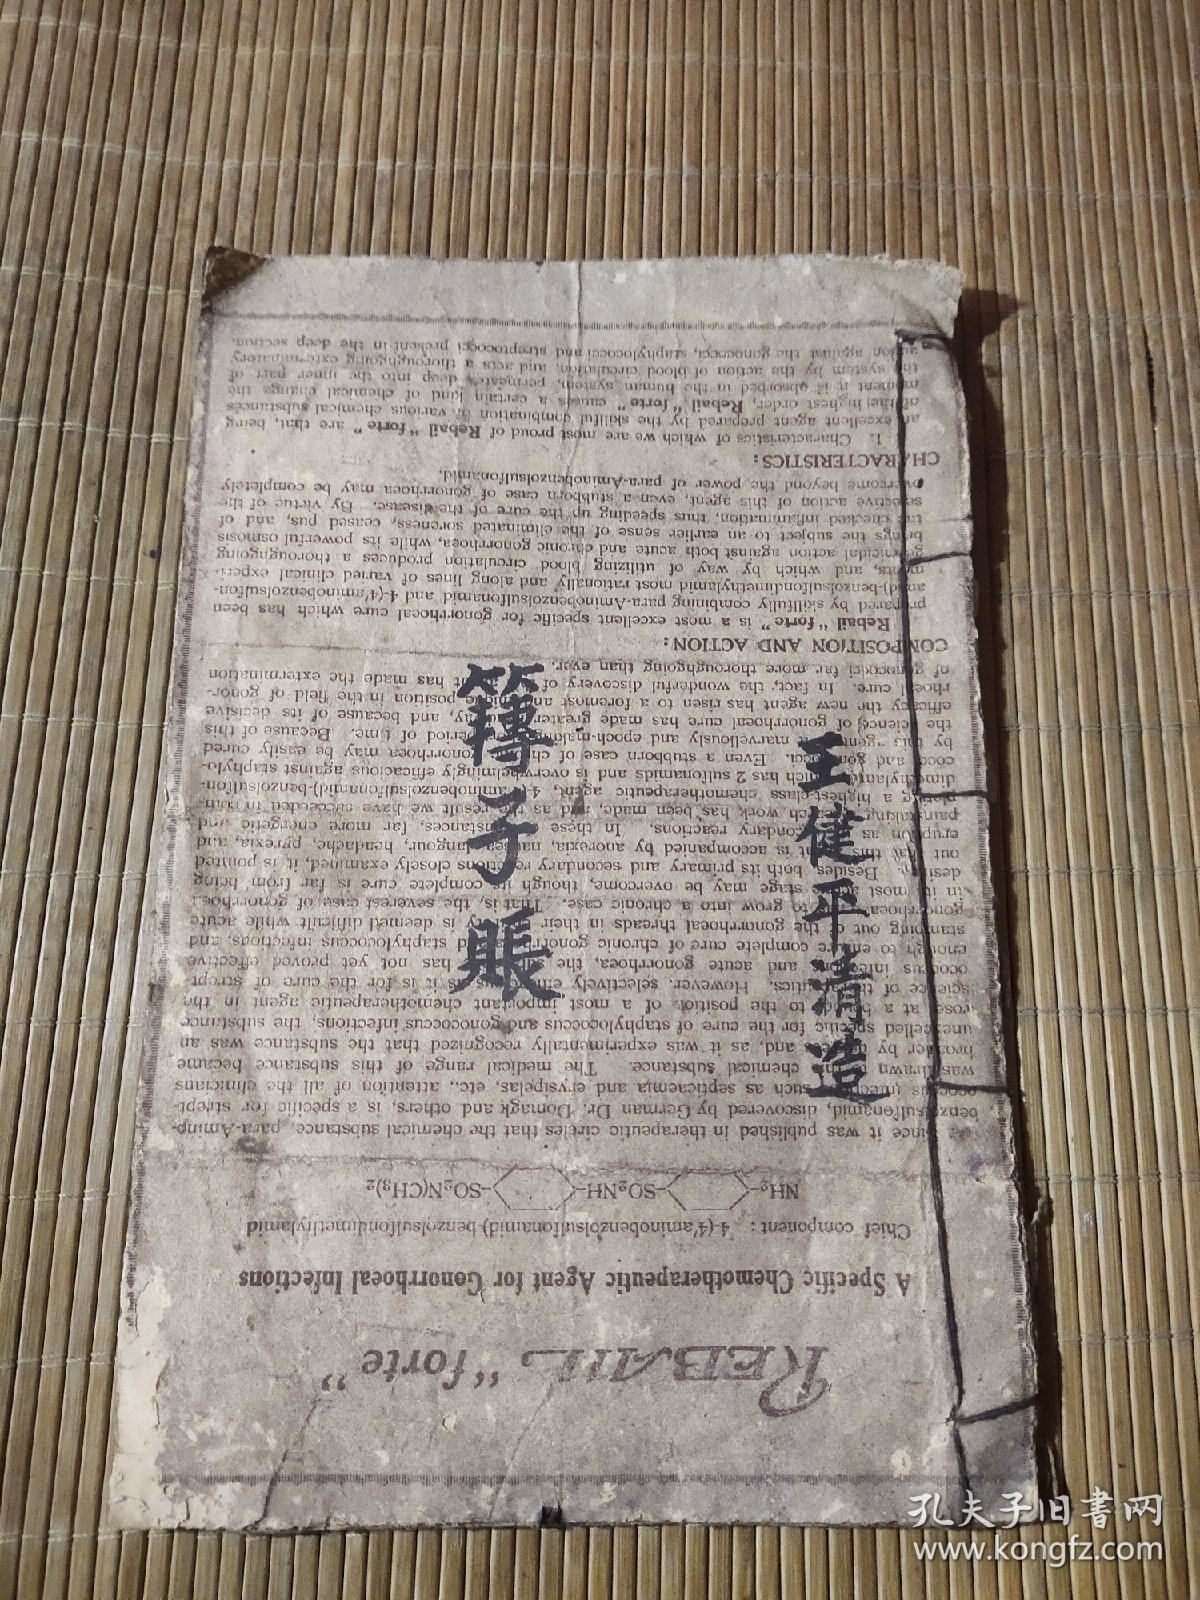 王健平清造
簿子賬
6
REBAIL “forte”
A Specific Chemotherapeutic Agent for Gonorrhoeal Infections
Chief component: 4-(4'aminobenzolsulfonamid)-benzolsulfondimethylamid
NH₂- -SO₂NH- -SO₂N(CH₃)₂
Since it was published in therapeutic circles that the chemical substance, para-Amino-
benzolsulfonamid, discovered by German Dr. Domagk and others, is a specific for strept-
ococcus such as septicaemia and erysipelas, etc., attention of all the clinicians
was drawn chemical substance. The medical range of this substance became
broader by and, as it was experimentally recognized that the substance was an
unexcelled specific for the cure of staphylococcus and gonococcus infections, the substance
rose at a to the position of a most important chemotherapeutic agent in the
science of However, selectively as it is for the cure of strept-
ococcus and acute gonorrhoea, the has not yet proved effective
enough to complete cure of chronic and staphylococcus infections, and
stamping out of the gonorrhoeal threads in their is deemed difficult while acute
gonorrhoea to grow into a chronic case. That is, the severest case of gonorrhoea
in its most stage may be overcome, though its complete cure is far from being
Besides, both its primary and secondary reactions closely examined, it is pointed
out that this is accompanied by anorexia, languour, headache, pyrexia, and
eruption as secondary reactions. In these far more energetic and
painstaking work has been made, and as the result we have succeeded in
a highest-class chemotherapeutic agent, 4-(4'aminobenzolsulfonamid)-benzolsulfon-
dimethylamid, which has 2 sulfonamids and is overwhelmingly efficacious against staphylo-
cocci and Even a stubborn case of gonorrhoea may be easily cured
by this marvellously and epoch-making period of time. Because of this
the science of gonorrhoeal cure has made greater and because of its decisive
efficacy the new agent has risen to a foremost and position in the field of gonor-
rhoea cure. In fact, the wonderful discovery of has made the extermination
of gonococci far more thoroughgoing than ever.
COMPOSITION AND ACTION:
Rebail “forte” is a most excellent specific for gonorrhoeal cure which has been
prepared by skillfully combining para-Aminobenzolsulfonamid and 4-(4'aminobenzolsulfon-
amid)-benzolsulfondimethylamid most rationally and along lines of varied clinical experi-
ments, and which by way of utilizing blood circulation produces a thoroughgoing
germicidal action against both acute and chronic gonorrhoea, while its powerful osmosis
brings the subject to an earlier sense of the eliminated soreness, ceased pus, and of
the checked inflammation, thus speeding up the cure of the disease. By virtue of the
selective action of this agent, even a stubborn case of gonorrhoea may be completely
overcome beyond the power of para-Aminobenzolsulfonamid.
CHARACTERISTICS:
1. Characteristics of which we are most proud of Rebail “forte” are that, being
an excellent agent prepared by the skillful combination of various chemical substances
of the highest order, Rebail “forte” causes a certain kind of chemical change the
moment it is absorbed in the human system, permeates deep into the inner part of
the system by the action of blood circulation, and acts a thoroughgoing exterminatory
action against the gonococci, staphylococci and streptococci present in the deep section.
孔夫子旧书网
www.kongfz.com